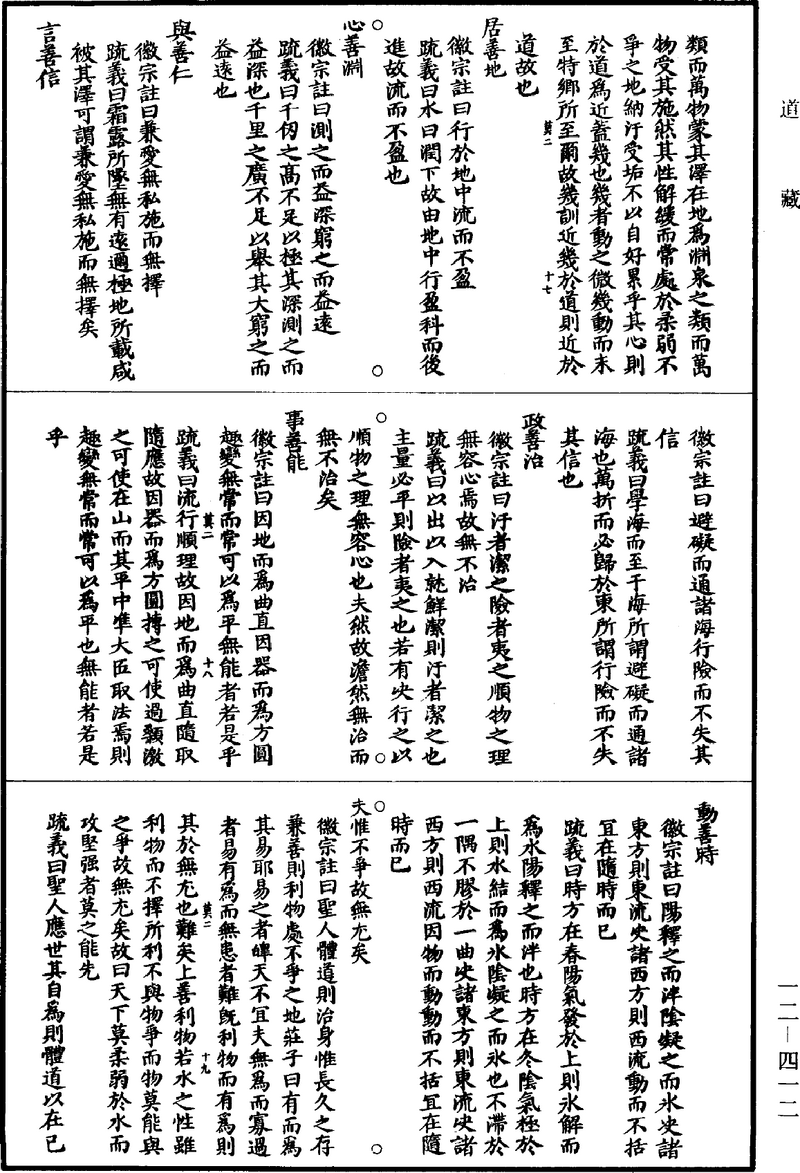 道藏
類而萬物蒙其澤在地爲淵泉之類而萬
物受其施然其性解緩而常處於柔弱不
爭之地納汙受垢不以自好累乎其心則
於道爲近蓋幾也幾者動之微幾動而未
至特鄉所至爾故幾訓近幾於道則近於
莫二 十七
道故也
居善地
徽宗註曰行於地中流而不盈
疏義曰水曰潤下故由地中行盈科而後
進故流而不盈也
心善淵
徽宗註曰測之而益深窮之而益遠
疏義曰千仞之高不足以極其深測之而
益深也千里之廣不足以舉其大窮之而
益遠也
與善仁
徽宗註曰兼愛無私施而無擇
疏義曰霜露所墜無有遠邇極地所載咸
被其澤可謂兼愛無私施而無擇矣
言善信
徽宗註曰避礙而通諸海行險而不失其
信
疏義曰學海而至于海所謂避礙而通諸
海也萬折而必歸於東所謂行險而不失
其信也
政善治
徽宗註曰汙者潔之險者夷之順物之理
無容心焉故無不治
疏義曰以出以入就鮮潔則汙者潔之也
主量必平則險者夷之也若有決行之以
順物之理無容心也夫然故澹然無治而
無不治矣
事善能
徽宗註曰因地而爲曲直因器而爲方圓
趣變無常而常可以爲平無能者若是乎
莫二 十八
疏義曰流行順理故因地而爲曲直隨取
隨應故因器而爲方圓摶之可使過顙激
之可使在山而其平中準大匠取法焉則
趣變無常而常可以爲平也無能者若是
乎
動善時
徽宗註曰陽釋之而泮陰凝之而冰決諸
東方則東流決諸西方則西流動而不括
宜在隨時而已
疏義曰時方在春陽氣發於上則氷解而
爲水陽釋之而泮也時方在冬陰氣極於
上則水結而爲氷陰凝之而氷也不滯於
一隅不膠於一曲決諸東方則東流決諸
西方則西流因物而動動而不括宜在隨
時而已
夫惟不爭故無尤矣
徽宗註曰聖人體道則治身惟長久之存
兼善則利物處不爭之地莊子曰有而爲
其易耶易之者皞天不宜夫無爲而寡過
者易有爲而無患者難既利物而有爲則
莫二 十九
其於無尤也難矣上善利物若水之性雖
利物而不擇所利不與物爭而物莫能與
之爭故無尤矣故曰天下莫柔弱於水而
攻堅强者莫之能先
疏義曰聖人應世其自爲則體道以在己
一二—四一二